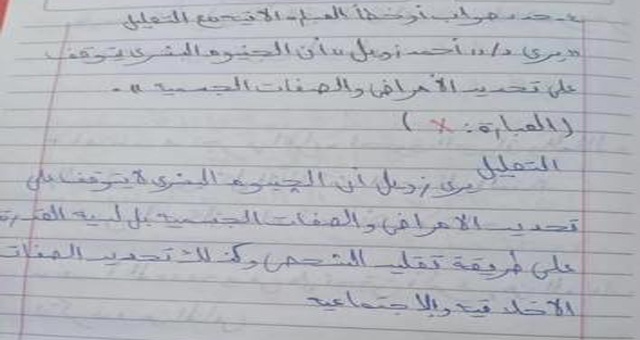 ٤- حدد صواب أو خطأ العبارة الآتية مع التعليل
" يرى د/ أحمد زويل " أن الجينوم البشرى يتوقف
على تحديد الأمراض والصفات الجسمية " .
(العبارة : X )
التعليل
يرى زويل أن الجينوم البشرى لا يتوقف على
تحديد الامراض والصفات الجسمية بل لديه القدرة
على طريقة تفكير الشخص وكذلك تحديد الصفات
الاخلاقية والاجتماعية